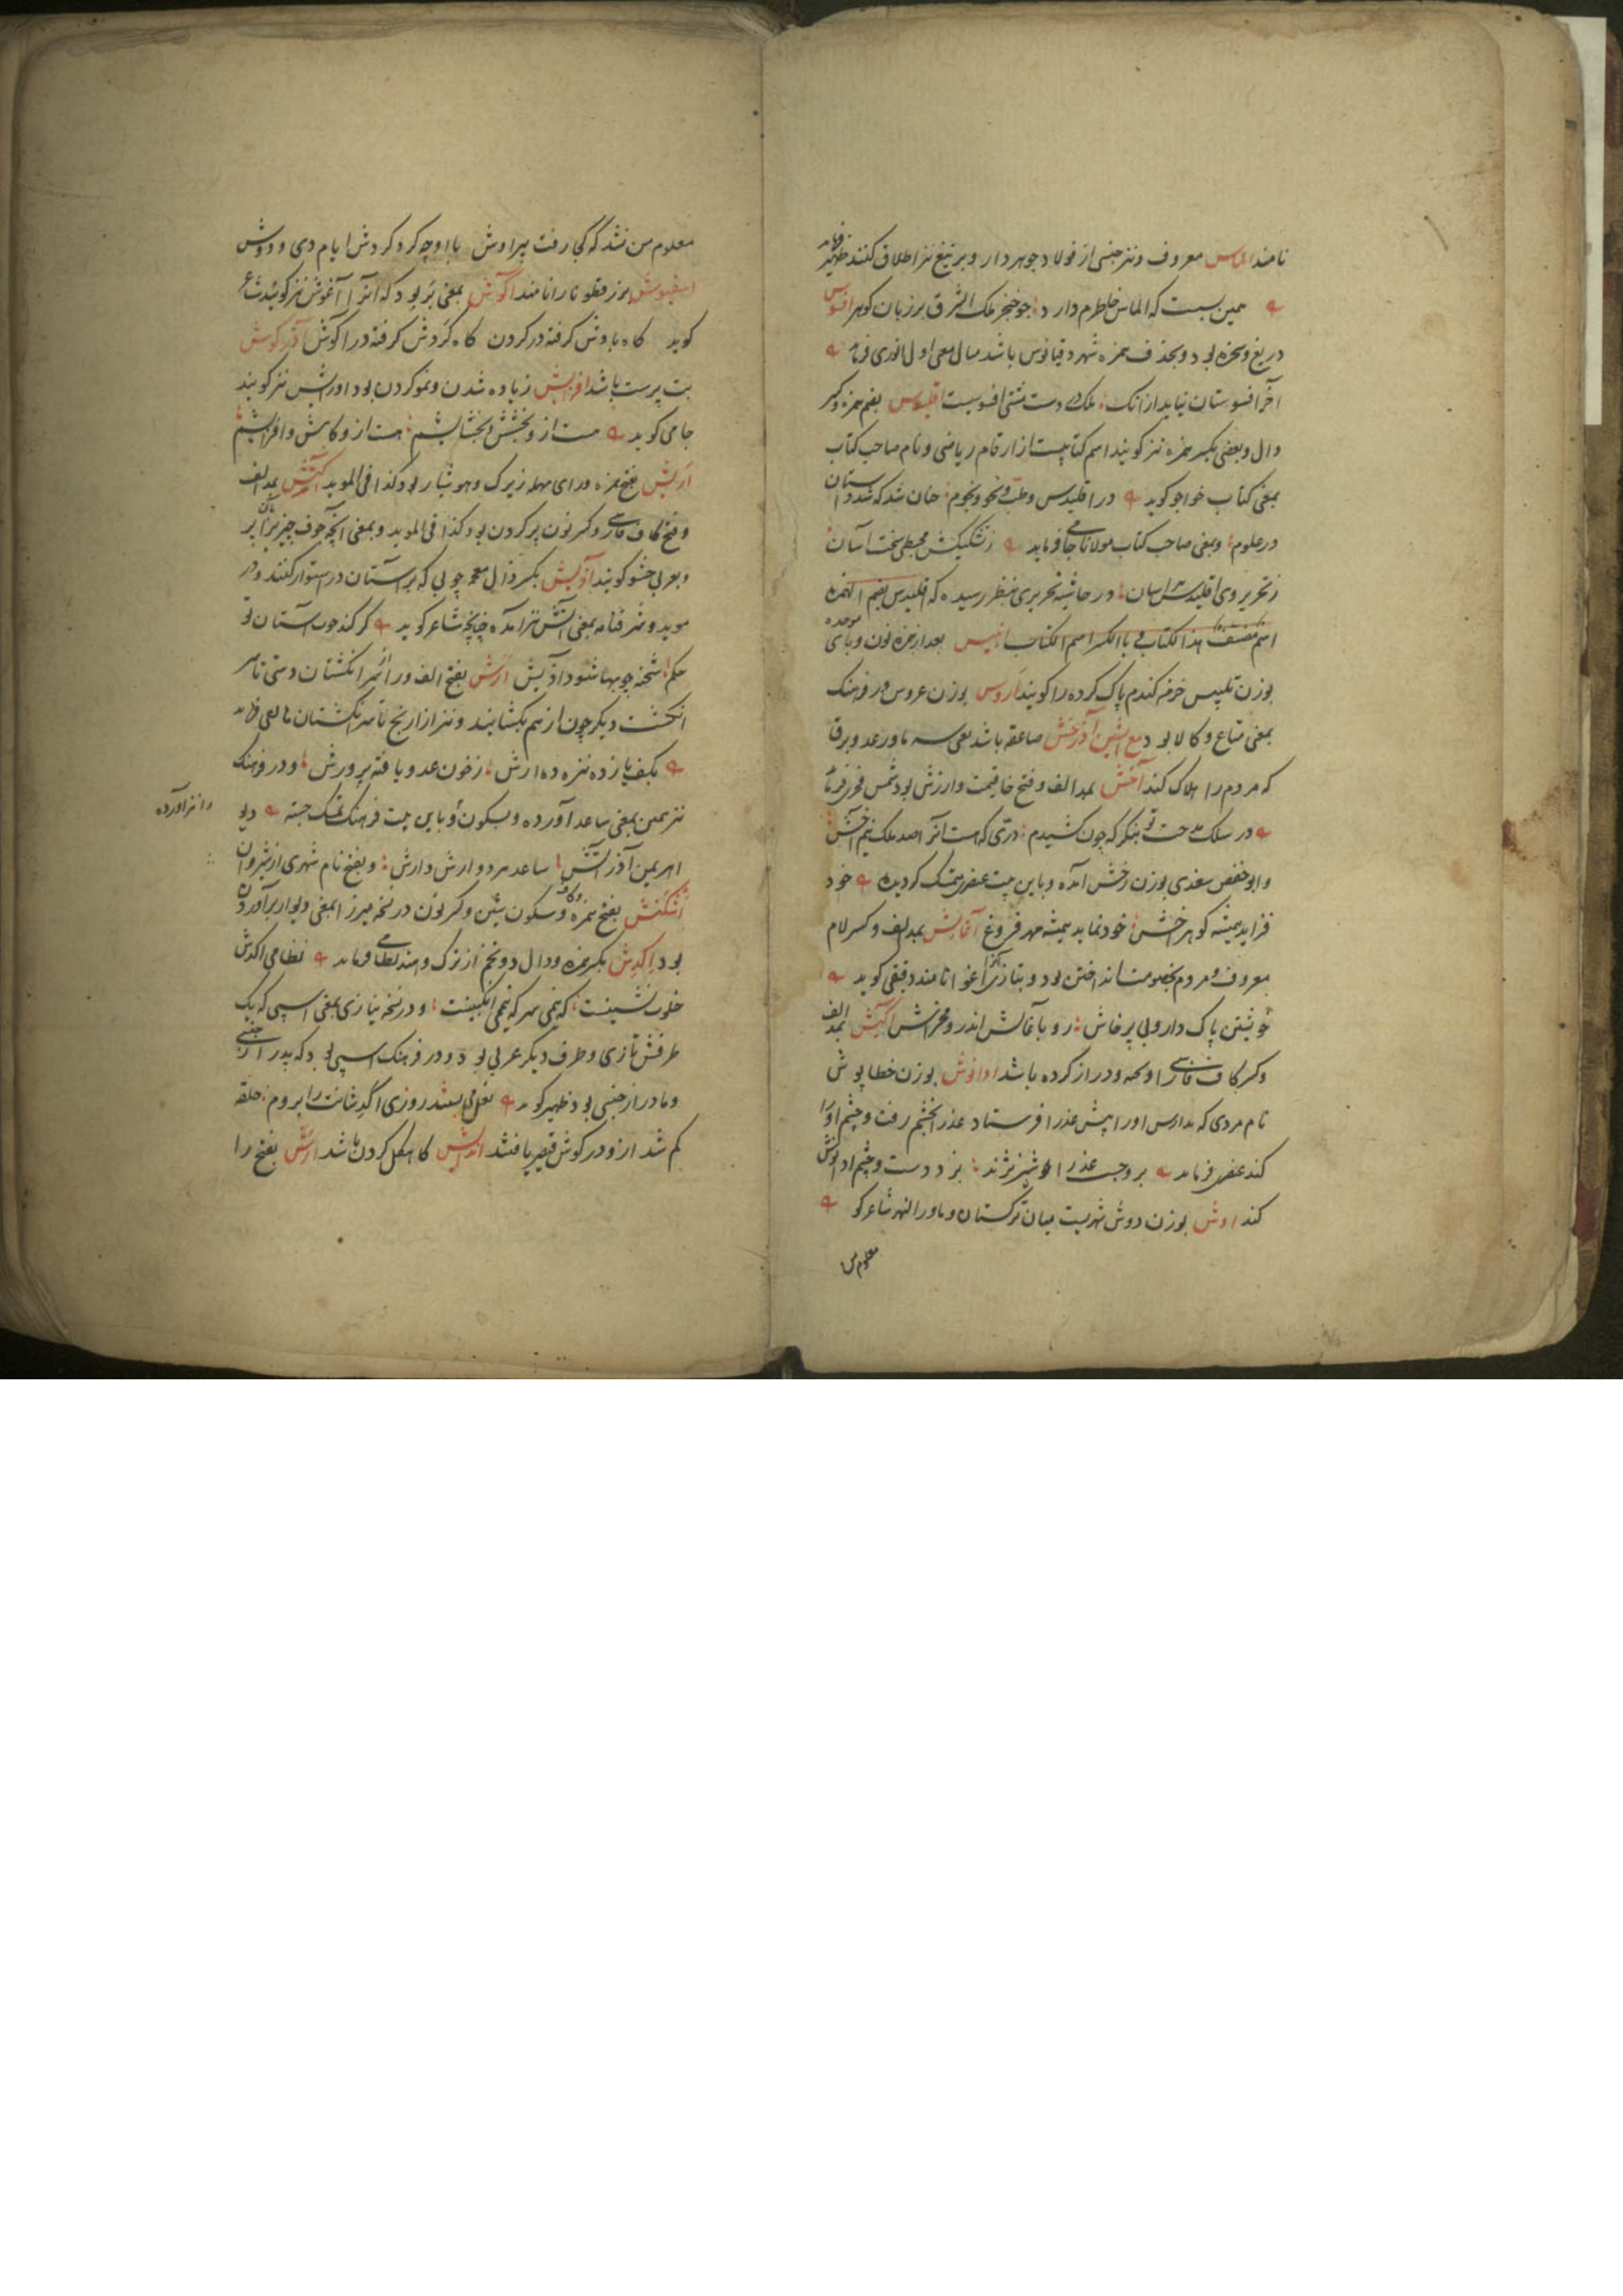 نامند الماس معروف و نیز جنسی از فولاد جوهردار و بر تیغ نیز اطلاق کنند ظهیر فرماید
همین بست که الماس خاطرم دارد چو خنجر ملک الشرق بر زبان گوهر افسوس
دریغ و سخره بود و بحذف همزه شهر دقیانوس باشد مثال معی اول انوری فرماید
آخر افسوستان نیاید از آنک ملک در دست مشتی افسوسیست اقلیدس بضم همزه و کسر
دال و بعضی بکسر همزه نیز گویند اسم کتابیست از ارقام ریاضی و نام صاحب کتاب
بمعنی کتاب خواجو گوید در اقلیدس و طب و نحو و نجوم چنان شد که شد داستان
در علوم و بمعنی صاحب کتاب مولانا جامی فرماید ز تشکیکش مجسطی سخت آسان
ز تحریر وی اقلیدس اسان و در حاشیه تحریری بنظر رسیده که اقلیدس بضم الهمزه
اسم مصنف هذا الکتاب و بالکسر اسم الکتاب انبیس بعد از همزه نون و بای موحده
بوزن تلبیس خرمه گندم پاک کرده را گویند اروس بوزن عروس در فرهنگ
بمعنی متاع و کالا بود مع الشین آذرخش صاعقه باشد یعنی و رعد و برق
که مردم را هلاک کند آخش بمد الف و فتح خا قیمت و ارزش بود شمس فخری فرماید
در سلک مدحت تو بنگر که چون کشیدم دری که هست آنرا صد ملک نیم آخش
و ابو حفص سغدی بوزن رخش آمده و باین بیت عنصری متمسک گردیده خود
فزاید همیشه گوهر اخش خود نماید همیشه مهر فروغ آغالش بمد الف و کسر لام
معروف و مردم بخصومت انداختن بود و بتازی آنرا اغرا نامند دقیقی گوید
خویشتن پاک دار و بی پرخاش رو بآغالش اندرو مخراش آگیش بمد الف
و کسر کاف فارسی را و در از کرده باشد ادانوش بوزن خطاپوش
نام مردی که او را پیش عذرا فرستاد عذرا بخشم رفت و چشم او را
کند عنصری فرماید بر وجست عذرا چو شیر نژند بزد دست و چشم ادانوش
کند اوش بوزن دوش شهریست میان ترکستان و ماوراالنهر شاعر گو
معلوم من
معلوم من نشد که کجا رفت پیر اوش با او چه کرد گردش ایام دی و دوش
اسفیوش بزر قطونا را نامند آگوش بمعنی بر بود که آنرا آغوش نیز گویند شاعر
گوید گاه بادوش گرفته در گردن گاه کردش گرفته در آگوش آذرکوش
بت پرست باشد افزایش زیاده شدن و نمو کردن بود اورایش نیز گویند
جامی گوید هست از و بخشش و بخشایشم هست از و کاهش و افزایشم
اریش بفتح همزه و رای مهمله زیرک و هوشیار بود کذا فی الموید آگنش بمد الف
و فتح کاف فارسی و کسر نون پر کردن بود کذا فی الموید و بمعنی آنچه جوف چیزی را بآن پر
و بعربی حشو گویند آذیش بکسر ذال معجمه چوبی که بر آستان در استوار کنند و در
موید و شرفنامه بمعنی آتش نیز آمده چنانچه شاعر گوید گر کند چوب آستان تو
حکم شحنه چوبها شود آذیش ارش بفتح الف و را از سر انگشتان دستی تا سر
انگشت دیگر چون از هم بگشایند و نیز از ارنج تا سر انگشتان فرماید
بکف بازده نیزه ده ارش ز خون عدو یافته پرورش و در فرهنگ
نیز همین بمعنی ساعد آورده و بسکون را و باین بیت فرهنگ تمسک جسته دیو
را نیز آورده
اهریمن آذر آتش ساعد مرد و ارش وارش و بفتح نام شهری از شروان
اشکنش بفتح همزه و کاف و سکون شین و کسر نون در نسخه میرزا بمعنی دیوار برآوردن
بود اکدش بکسر همزه و دال دو تخم از ترک و هند نظامی فرماید نظامی اکدش
خلوت نشینست که نیمی سرکه نیمی انگبینست و در نسخه نیازی بمعنی اسپی که یک
طرفش تازی و طرف دیگر عربی بود و در فرهنگ اسپی بود که پدر از جنسی
و مادر از جنسی بود ظهیر گوید نعل روزی اکدشانت را بروم حلقه
کم شد از و در گوش قیصر یافتند اندایش کاهگل کردن باشد ارش بفتح را